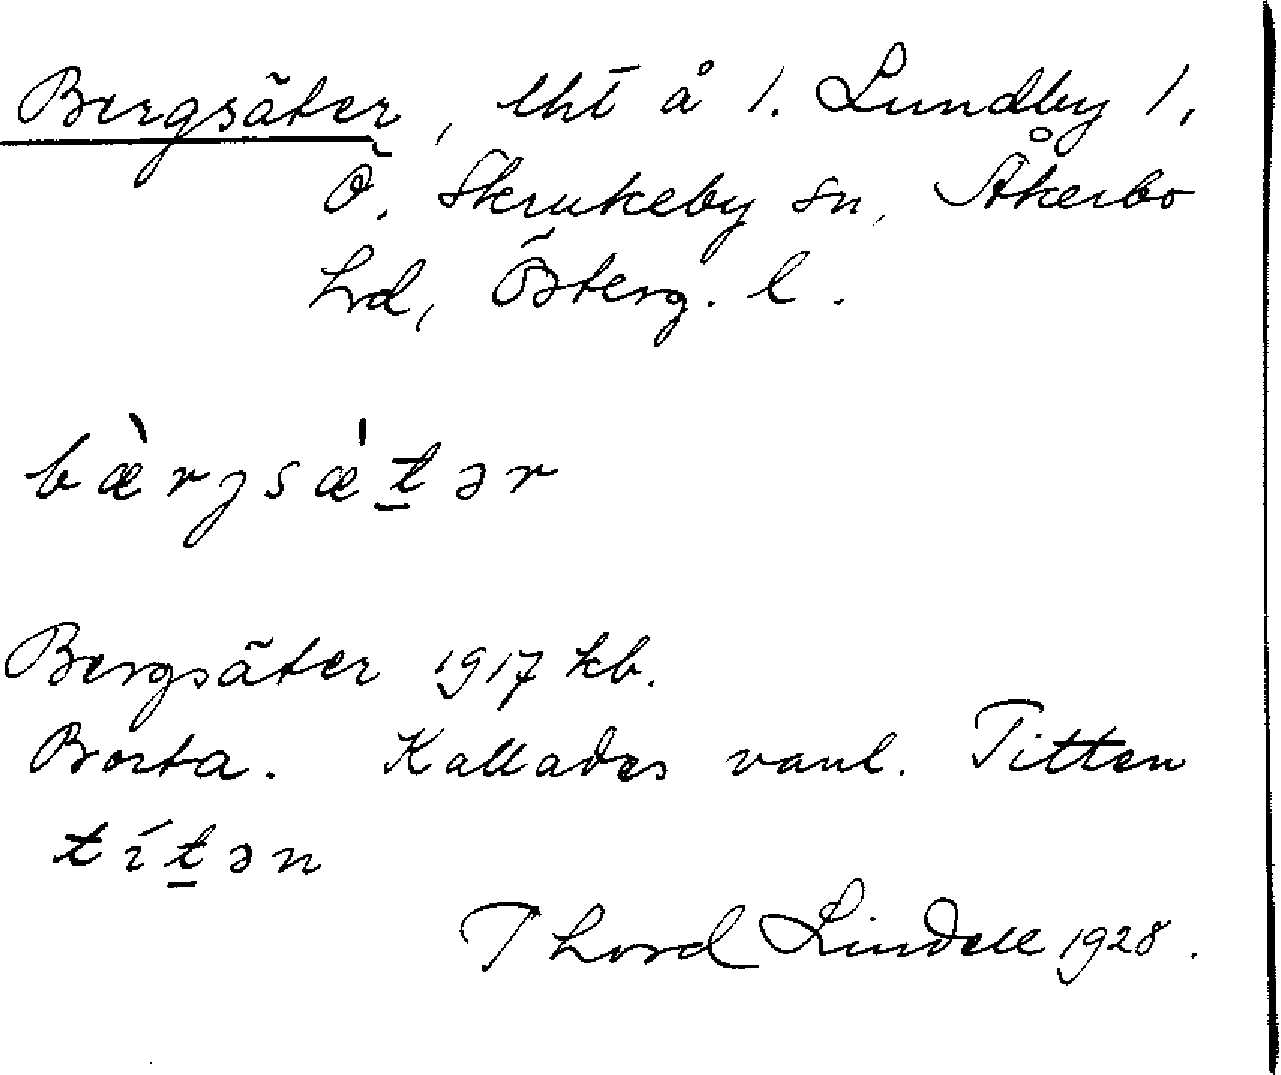 Bergsäter, lht å 1. Lundby 1,
Ö. Skrukeby sn, Åkerbo
hd, Österg. l.
bæ̀rjsæ̍t̲ər
Bergsäter 1917 kb.
Borta. Kallades vanl. Titten
tít̲ən
Thord Lindell 1928.